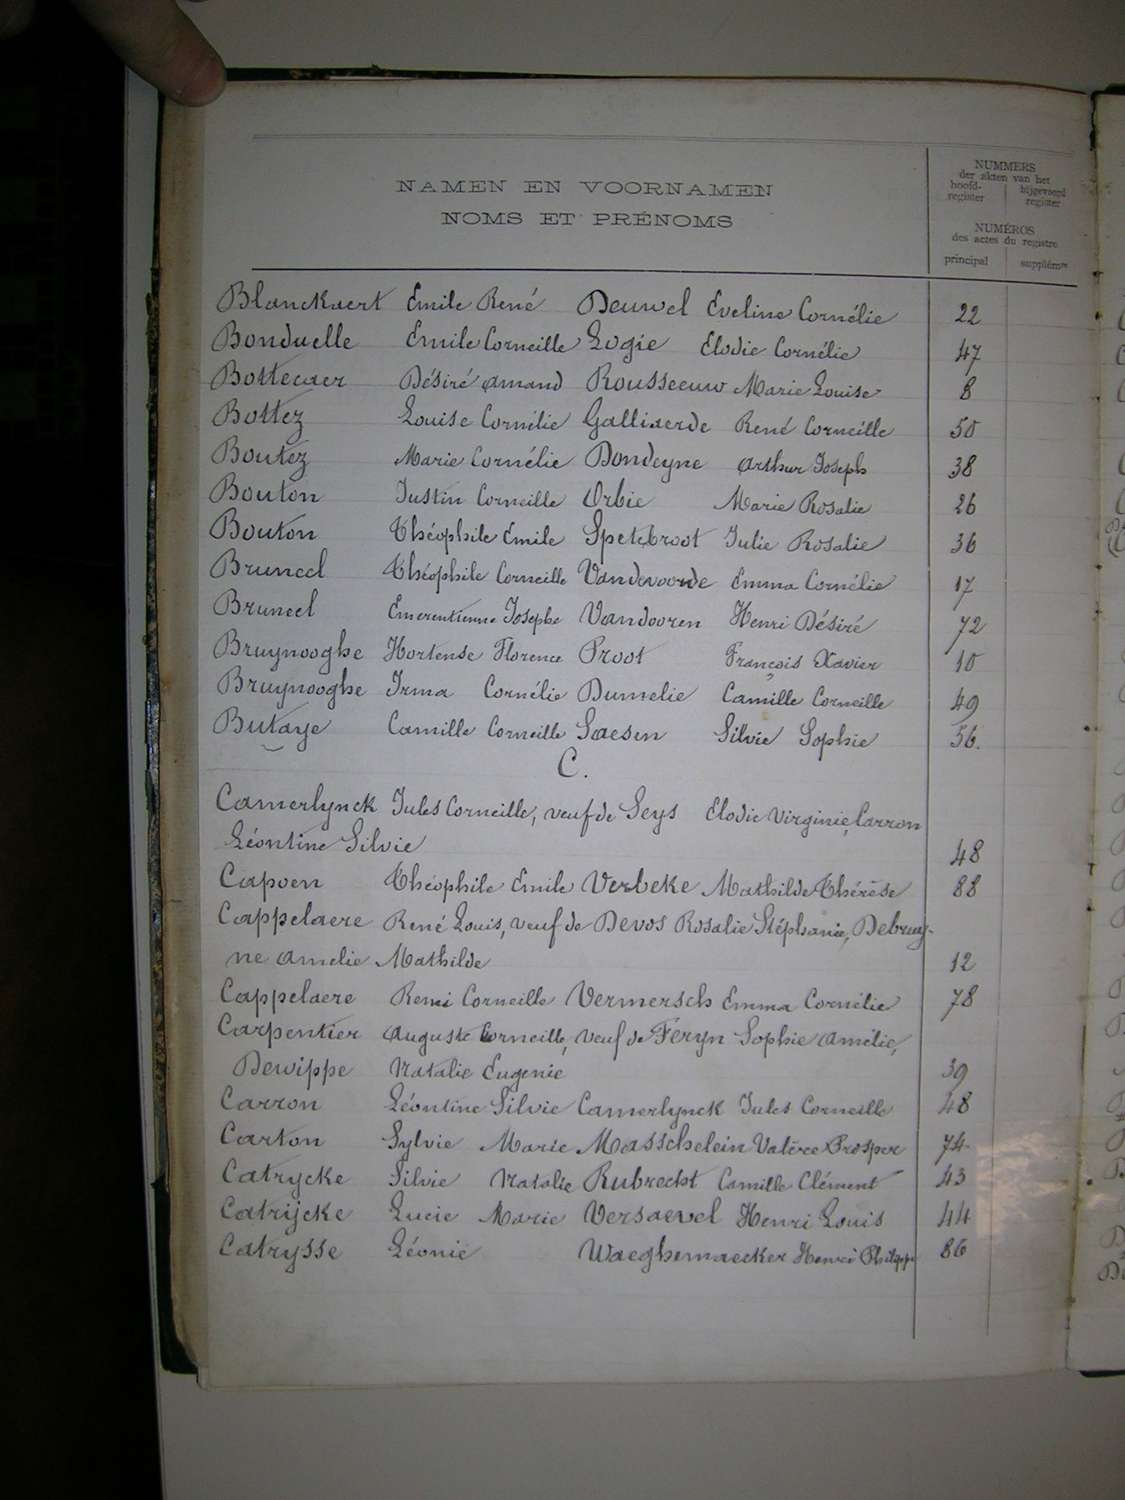 NAMEN EN VOORNAMEN
NOMS ET PRÉNOMS
NUMMERS
der akten van het
hoofd-register
bijgevoegd register
NUMÉROS
des actes du registre
principal
supplémre
Blanckaert Emile René Deuwel Eveline Cornélie 22
Bonduelle Emile Corneille Logie Elodie Cornélie 47
Bottecaer Désiré Amand Rousseeuw Marie Louise 8
Bottez Louise Cornélie Galliaerde René Corneille 50
Boutez Marie Cornélie Dondeyne Arthur Joseph 38
Bouton Justin Corneille Orbie Marie Rosalie 26
Bouton Théophile Emile Spetebroot Julie Rosalie 36
Bruneel Théophile Corneille Vandevoorde Emma Cornélie 17
Bruneel Emerentienne Josephe Vandooren Henri Désiré 72
Bruynooghe Hortense Florence Proot François Xavier 10
Bruynooghe Irma Cornélie Dumelie Camille Corneille 49
Butaye Camille Corneille Saesen Silvie Sophie 56.
C.
Camerlynck Jules Corneille, veuf de Seys Elodie Virginie, Carron
Léontine Silvie 48
Capoen Théophile Emile Verbeke Mathilde Thérèse 88
Cappelaere René Louis, veuf de Devos Rosalie Stéphanie, Debruy-
ne Amelie Mathilde 12
Cappelaere Remi Corneille Vermersch Emma Cornélie 78
Carpentier Auguste Corneille, veuf de Feryn Sophie Amélie,
Dewippe Natalie Eugenie 39
Carron Léontine Silvie Camerlynck Jules Corneille 48
Carton Sylvie Marie Masschelein Valère Prosper 74
Catrycke Silvie Natalie Rubrecht Camille Clément 43
Catrijcke Lucie Marie Versaevel Henri Louis 44
Catrysse Léonie Waeghemaecker Henri Philippe 86